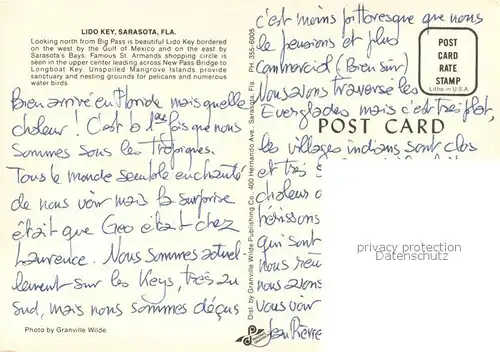 LIDO KEY, SARASOTA, FLA.
Looking north from Big Pass is beautiful Lido Key bordered
on the west by the Gulf of Mexico and on the east by
Sarasota's Bays. Famous St. Armands shopping circle is
seen in the upper center leading across New Pass Bridge to
Longboat Key. Unspoiled Mangrove Islands provide
sanctuary and nesting grounds for pelicans and numerous
water birds.
Bien arrivé en Floride mais quelle
chaleur ! C'est la 1ère fois que nous
sommes sous les Tropiques.
Tous le monde semble enchanté
de nous voir mais la surprise
était que Geo était chez
Laurence. Nous sommes actuel
lement sur les Keys, très au
sud, mais nous sommes déçus
Photo by Granville Wilde
Dist. by Granville Wilde Publishing Co., 400 Hernando Ave., Sarasota, Fla. PH. 355-6005
c'est moins pittoresque que nous
le pensions et plus
commercial (Bien sûr)
Nous avons traversé les
Everglades mais c'est très plat,
les villages indiens sont clos
et très
chaleur
hérissons
qui sont
nous
nous avons
vous voir
Jean Pierre
POST
CARD
RATE
STAMP
Litho in U.S.A.
POST CARD
privacy protection
Datenschutz